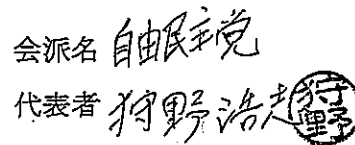 会派名 自由民主党
代表者 狩野浩志 狩野